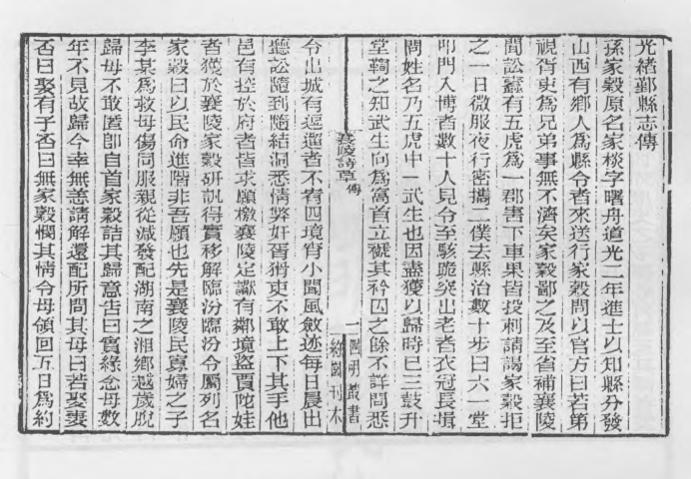 光緒鄞縣志傳
孫家穀原名家棪字曙舟道光二年進士以知縣分發
山西有鄉人爲縣令者來送行家穀問以官方曰若第
視胥吏爲兄弟事無不濟矣家穀鄙之及至省補襄陵
聞訟蠹有五虎爲一郡害下車果皆投刺請謁家穀拒
之一日微服夜行密攜二僕去縣治數十步曰六一堂
叩門入博者數十人見令至駭跪突出老者衣冠長揖
問姓名乃五虎中一武生也因盡獲以歸時已三鼓升
堂鞫之知武生向爲窩首立褫其衿囚之餘不詳問悉
襄陵詩草 傳 二 四明叢書 約園刊本
令出城有逗遛者不宥四境宵小聞風斂迹每日晨出
聽訟隨到隨結洞悉情弊奸胥猾吏不敢上下其手他
邑有控於府者皆求願檄襄陵定讞有鄰境盜賈陀娃
者獲於襄陵家穀研訊得實移解臨汾臨汾令屬列名
家穀曰以民命進階非吾願也先是襄陵民寡婦之子
李某爲救母傷同服親從減發配湖南之湘鄉越歲脫
歸母不敢匿卽自首家穀詰其歸意告曰實緣念母數
年不見故歸今幸無恙請解還配所問其母曰若娶妻
否曰娶有子否曰無家穀憫其情令母領回五日爲約